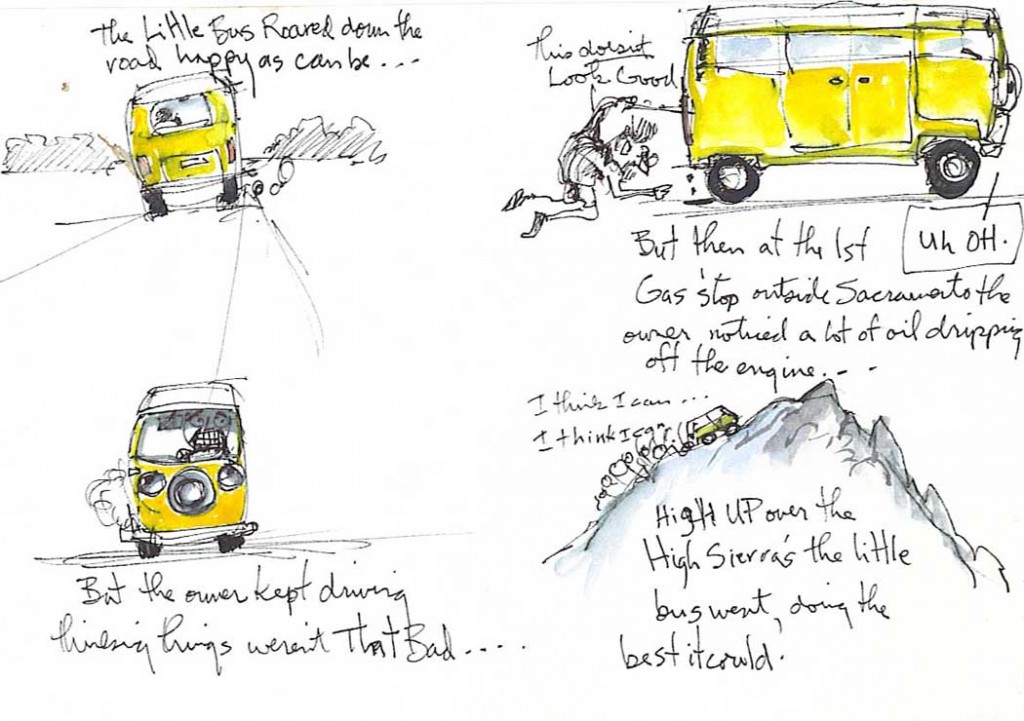 The Little Bus Roared down the
road happy as can be...
This doesn't
Look Good
Uh OH.
But then at the 1st
Gas stop outside Sacramento the
owner noticed a lot of oil dripping
off the engine....
But the owner kept driving
thinking things weren't That Bad.....
I think I can...
I think I can
HigH UP over the
High Sierra's the little
bus went, doing the
best it could.